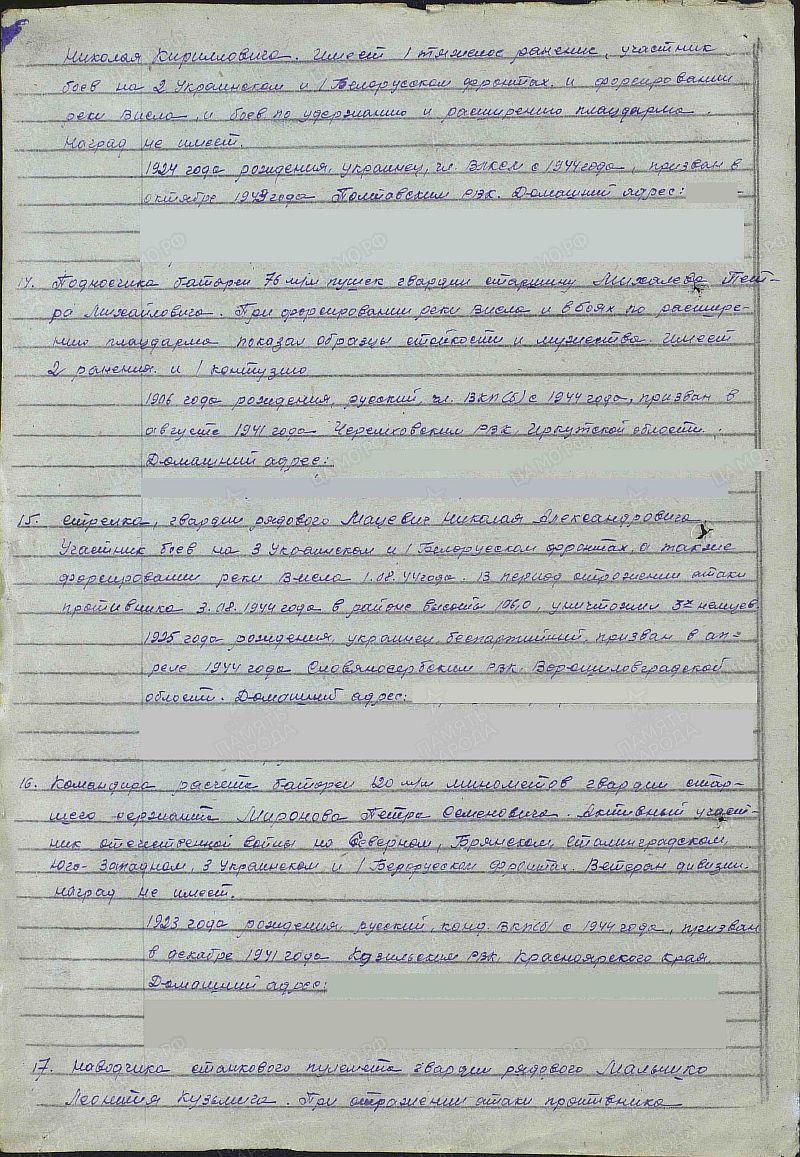 Николая Кирилловича. Имеет 1 тяжелое ранение, участник
боев на 2 Украинском и 1 Белорусском фронтах и форсировании
реки Висла, и боев по удержанию и расширению плацдарма.
Наград не имеет.
1924 года рождения, украинец, чл. ВЛКСМ с 1944 года, призван в
октябре 1943 года Полтавским РВК. Домашний адрес:
14. Подносчика батареи 76 м/м пушек гвардии старшину Михалева Пет-
ра Михайловича. При форсировании реки Висла и в боях по расшире-
нию плацдарма показал образцы стойкости и мужества. Имеет
2 ранения и 1 контузию
1906 года рождения, русский, чл. ВКП(б) с 1944 года, призван в
августе 1941 года Черемховским РВК, Иркутской области.
Домашний адрес:
15. Стрелка, гвардии рядового Мацевич Николая Александровича
Участник боев на 3 Украинском и 1 Белорусском фронтах, а также
форсировании реки Висла 1.08.44 года. В период отражении атаки
противника 3.08.1944 года в районе высоты 106,0, уничтожил 3х немцев.
1925 года рождения, украинец, беспартийный, призван в ап-
реле 1944 года Словяносербским РВК, Ворошиловградской
области. Домашний адрес:
16. Командира расчета батареи 120 м/м минометов гвардии стар-
шего сержанта Миронова Петра Семеновича. Активный участ-
ник отечественной войны на Северном, Брянском, Сталинградском,
Юго-Западном, 3 Украинском и 1 Белорусском фронтах. Ветеран дивизии.
Наград не имеет.
1923 года рождения, русский, канд. ВКП(б) с 1944 года, призван
в декабре 1941 года РВК, Красноярского края
Домашний адрес:
17. Наводчика станкового пулемета гвардии рядового Малышко
Леонтия Кузьмича. При отражении атаки противника